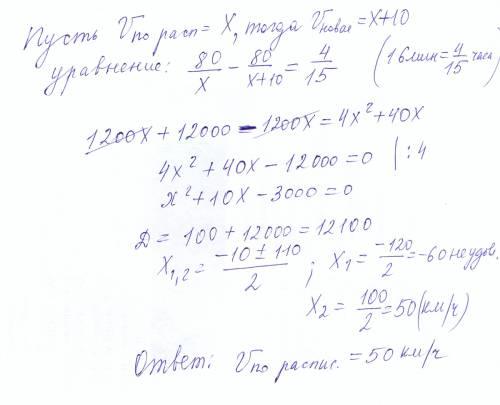 Пусть Vпо расп = X, тогда Vновая = X+10
уравнение: 80/X - 80/(X+10) = 4/15 (16мин = 4/15 часа)
1200X + 12000 - 1200X = 4X² + 40X
4X² + 40X - 12000 = 0 | :4
X² + 10X - 3000 = 0
Д = 100 + 12000 = 12100
X1,2 = (-10 ± 110)/2 ; X1 = -120/2 = -60 неудов.
X2 = 100/2 = 50 (км/ч)
Ответ: Vпо распис. = 50 км/ч